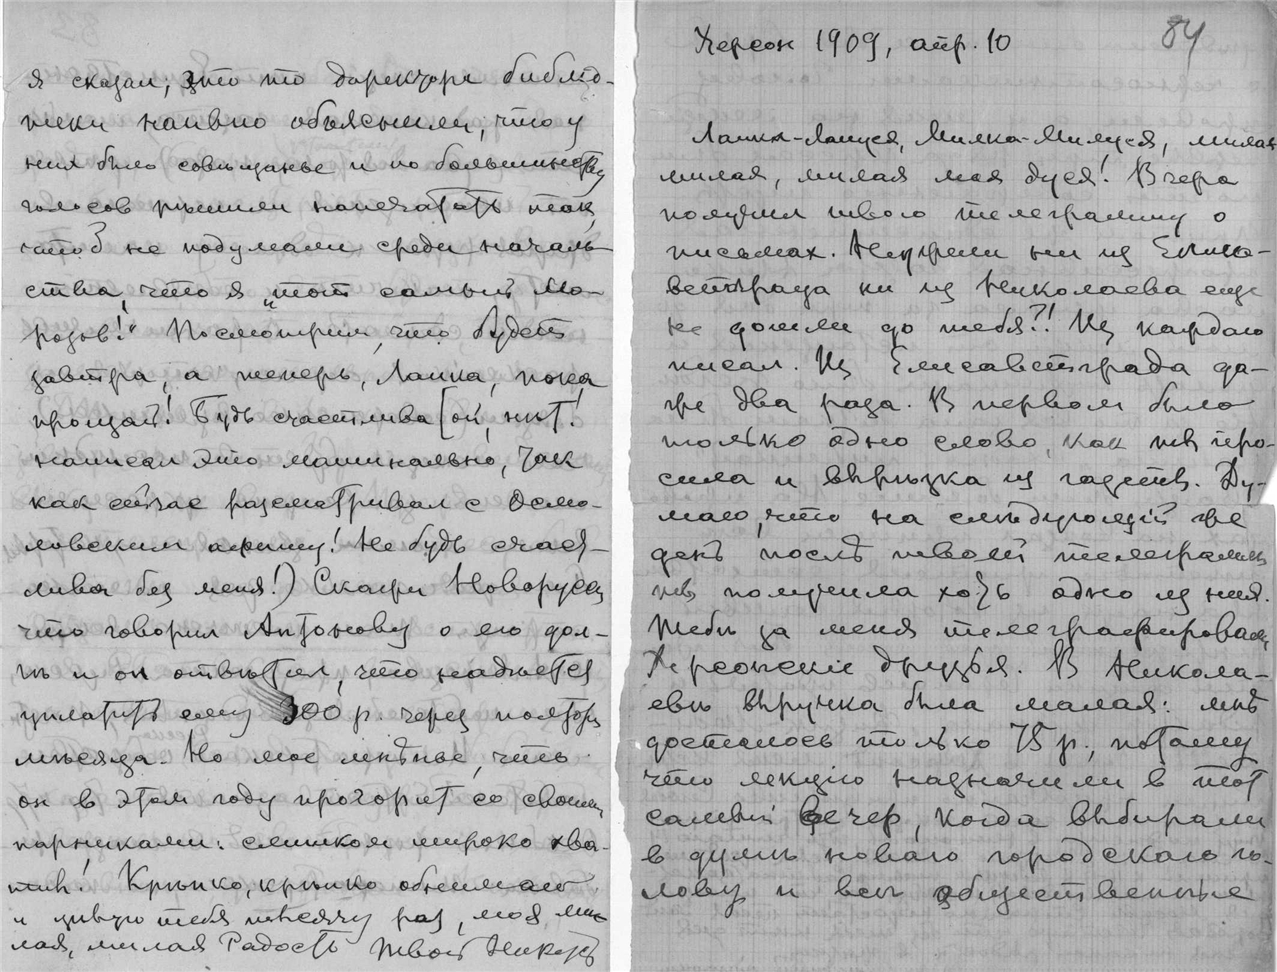 я сказал, что то директора библио-
теки наивно объяснили, что у
них было совещанье и по большинству
голосов решили напечатать так,
чтоб не подумали среди началь-
ства, что я „тот самый Мо-
розов!“ Посмотрим, что будет
завтра, а теперь, Лапка, пока
прощай! Будь счастлива [ой, нет!
написал это машинально, так
как сейчас рассматривал с Осмо-
ловским афишу! Не будь счаст-
лива без меня!) Скажи Новорусск
что говорил Антонову о его дол-
гѣ и он отвѣтил, что надѣется
уплатить ему 300 р. через полтора
мѣсяца. Но мое мнѣнье, что
он в этом году прогорит со своими
парниками: слишком широко хва-
тил! Крѣпко, крѣпко обнимаю
и цѣлую тебя тысячу раз, моя ми-
лая, милая Радость Твой Николай
84
Херсон 1909, апр. 10
Лапка-Лапуся, Милка-Милуся, милая
милая, милая моя дуся! Вчера
получил твою телеграмму о
письмах. Неужели ни из Елиса-
ветграда ни из Николаева еще
не дошли до тебя?! Из каждаго
писал. Из Елисаветграда да-
же два раза. В первом было
только одно слово, как ты про-
сила и вырѣзка из газеты. Ду-
маю, что на слѣдующій же
день послѣ твоей телеграммы
ты получила хоть одно из них.
Тебѣ за меня телеграфировали
Херсонскіе друзья. В Никола-
евѣ выручка была малая: мнѣ
досталось только 75 р., потому
что лекцію назначили в тот
самый вечер, когда выбирали
в думѣ новаго городского го-
лову и всѣ общественные